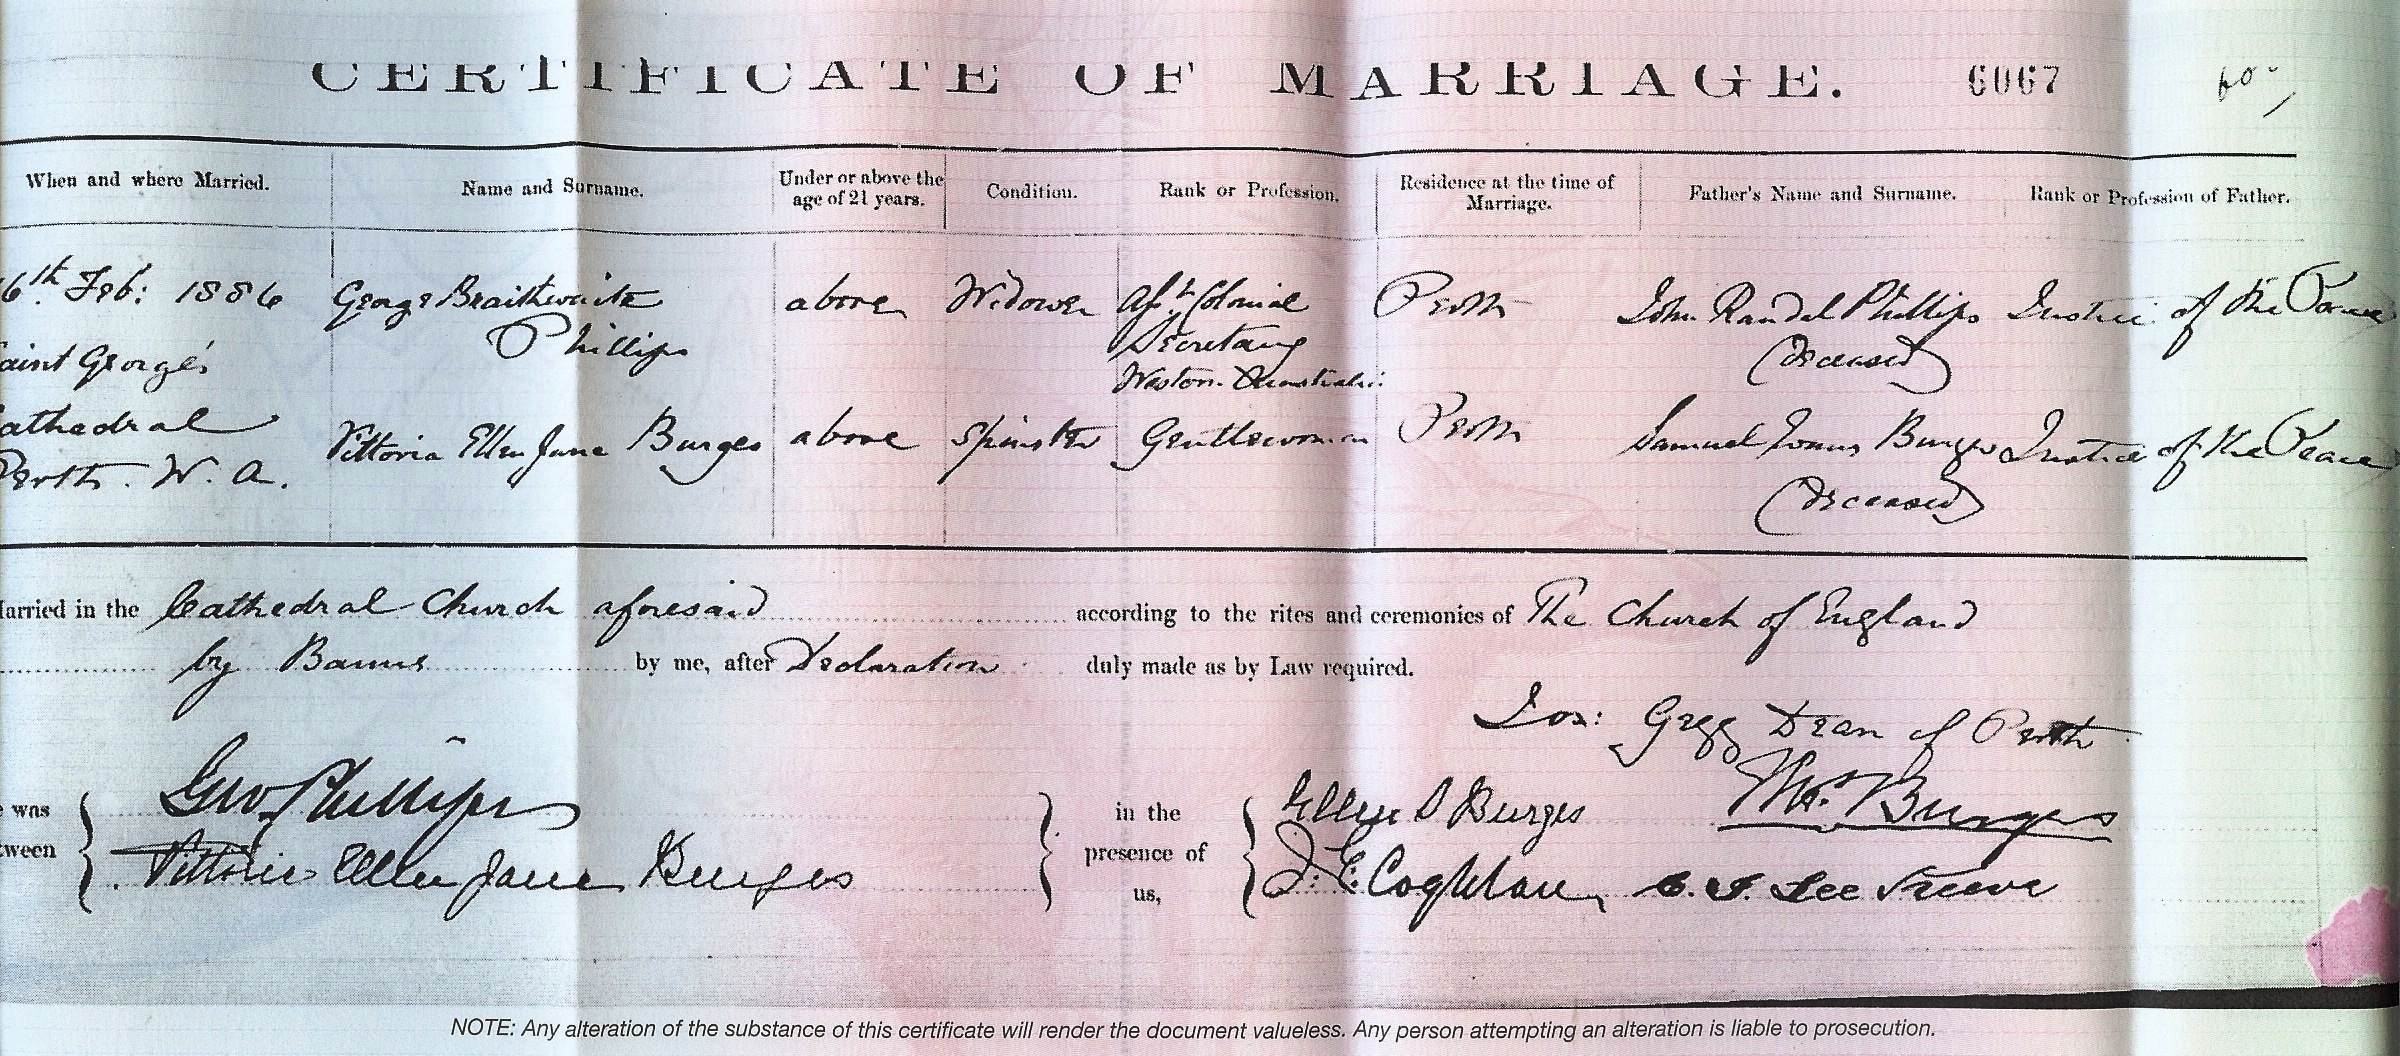 CERTIFICATE OF MARRIAGE. 6067 60-/
When and where Married. Name and Surname. Under or above the age of 21 years. Condition. Rank or Profession. Residence at the time of Marriage. Father's Name and Surname. Rank or Profession of Father.
6th. Feb: 1886 George Braithwaite Phillips above Widower Asst. Colonial Secretary Western Australia Perth John Randal Phillips (deceased) Justice of the Peace
aint George's
athedral Vittoria Ellen Jane Burges above Spinster Gentlewoman Perth Samuel Evans Burges (deceased) Justice of the Peace
Perth. W. A.
arried in the Cathedral Church aforesaid according to the rites and ceremonies of The Church of England
by Banns by me, after Declaration duly made as by Law required.
Jos: Gregg Dean of Perth
was Geo Phillips in the Ellen S Burges Thos. Burges
tween Vittoria Ellen Jane Burges presence of us, J. G. Coghlan C. F. Lee Steere
NOTE: Any alteration of the substance of this certificate will render the document valueless. Any person attempting an alteration is liable to prosecution.